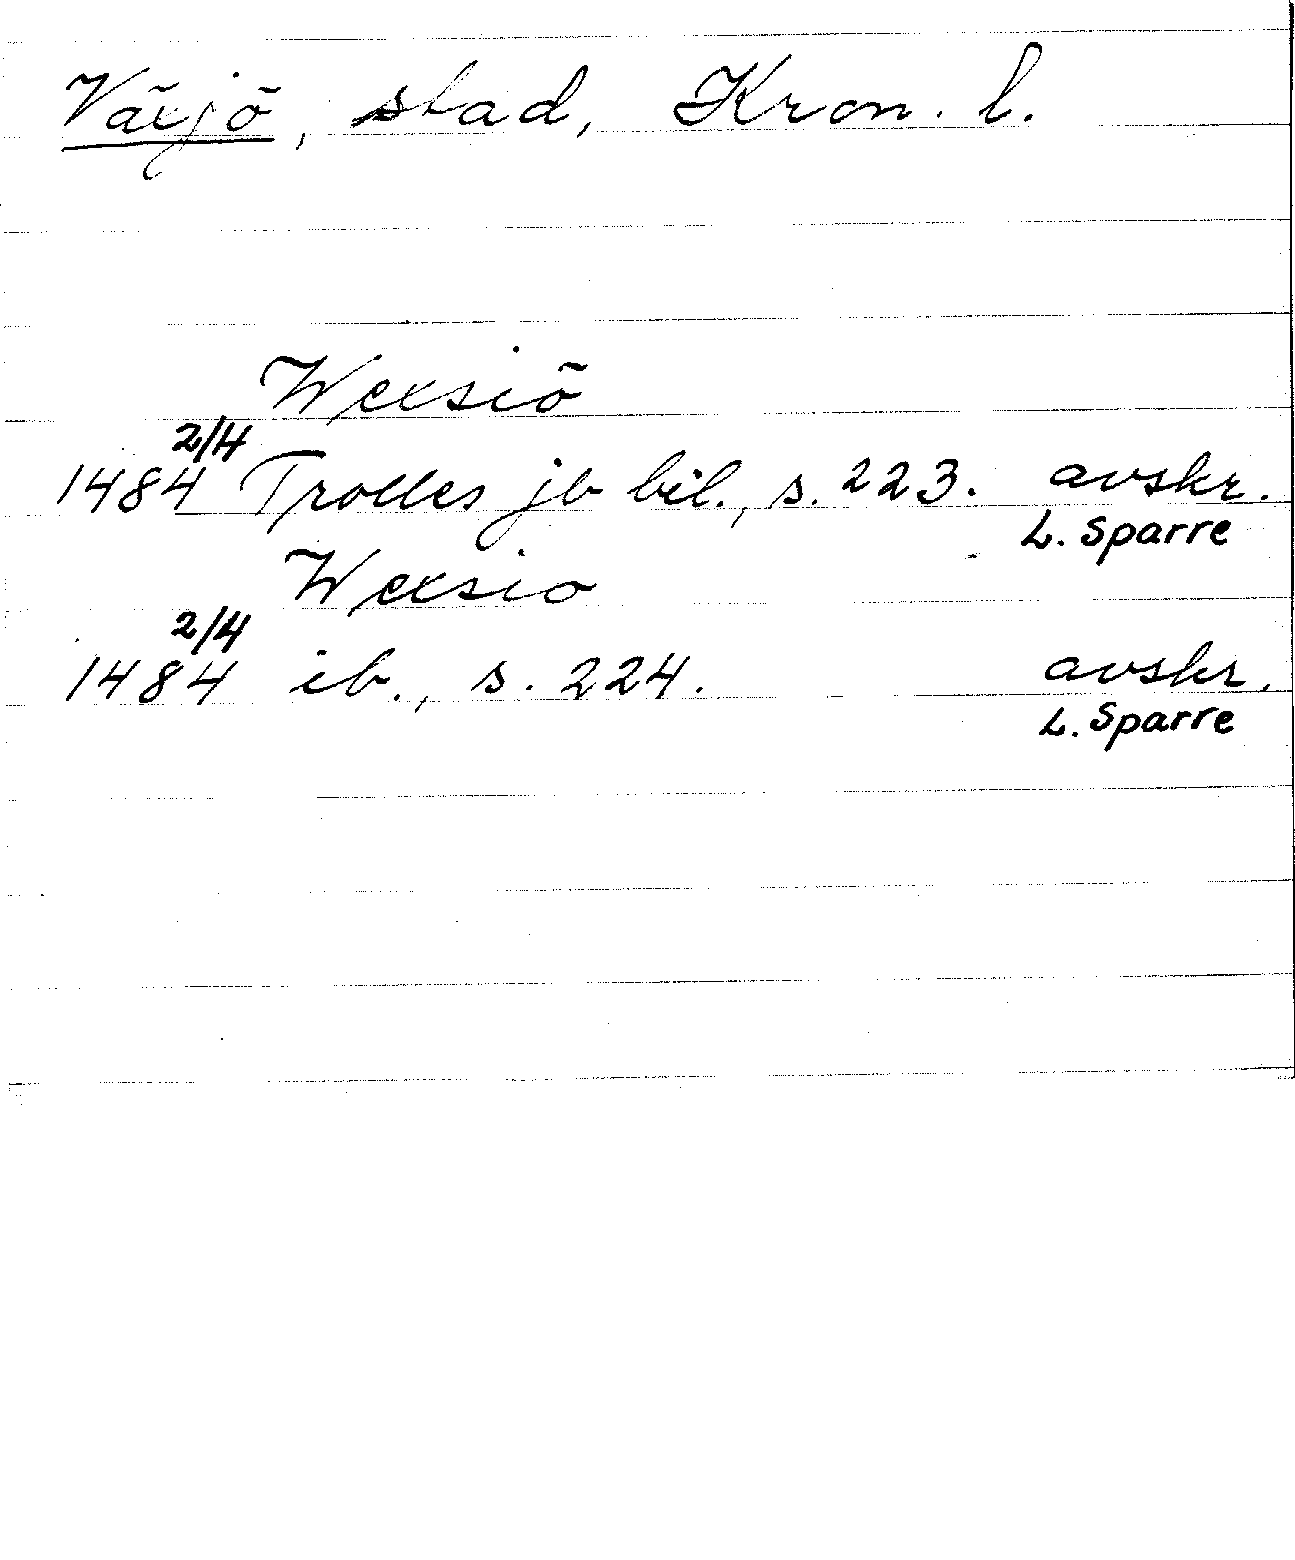 Växjö, stad, Kron. l.
Wexsiö
2/4
1484 Trolles jb bil., s. 223. avskr.
L. Sparre
Wexsio
2/4
1484 ib., s. 224. avskr.
L. Sparre